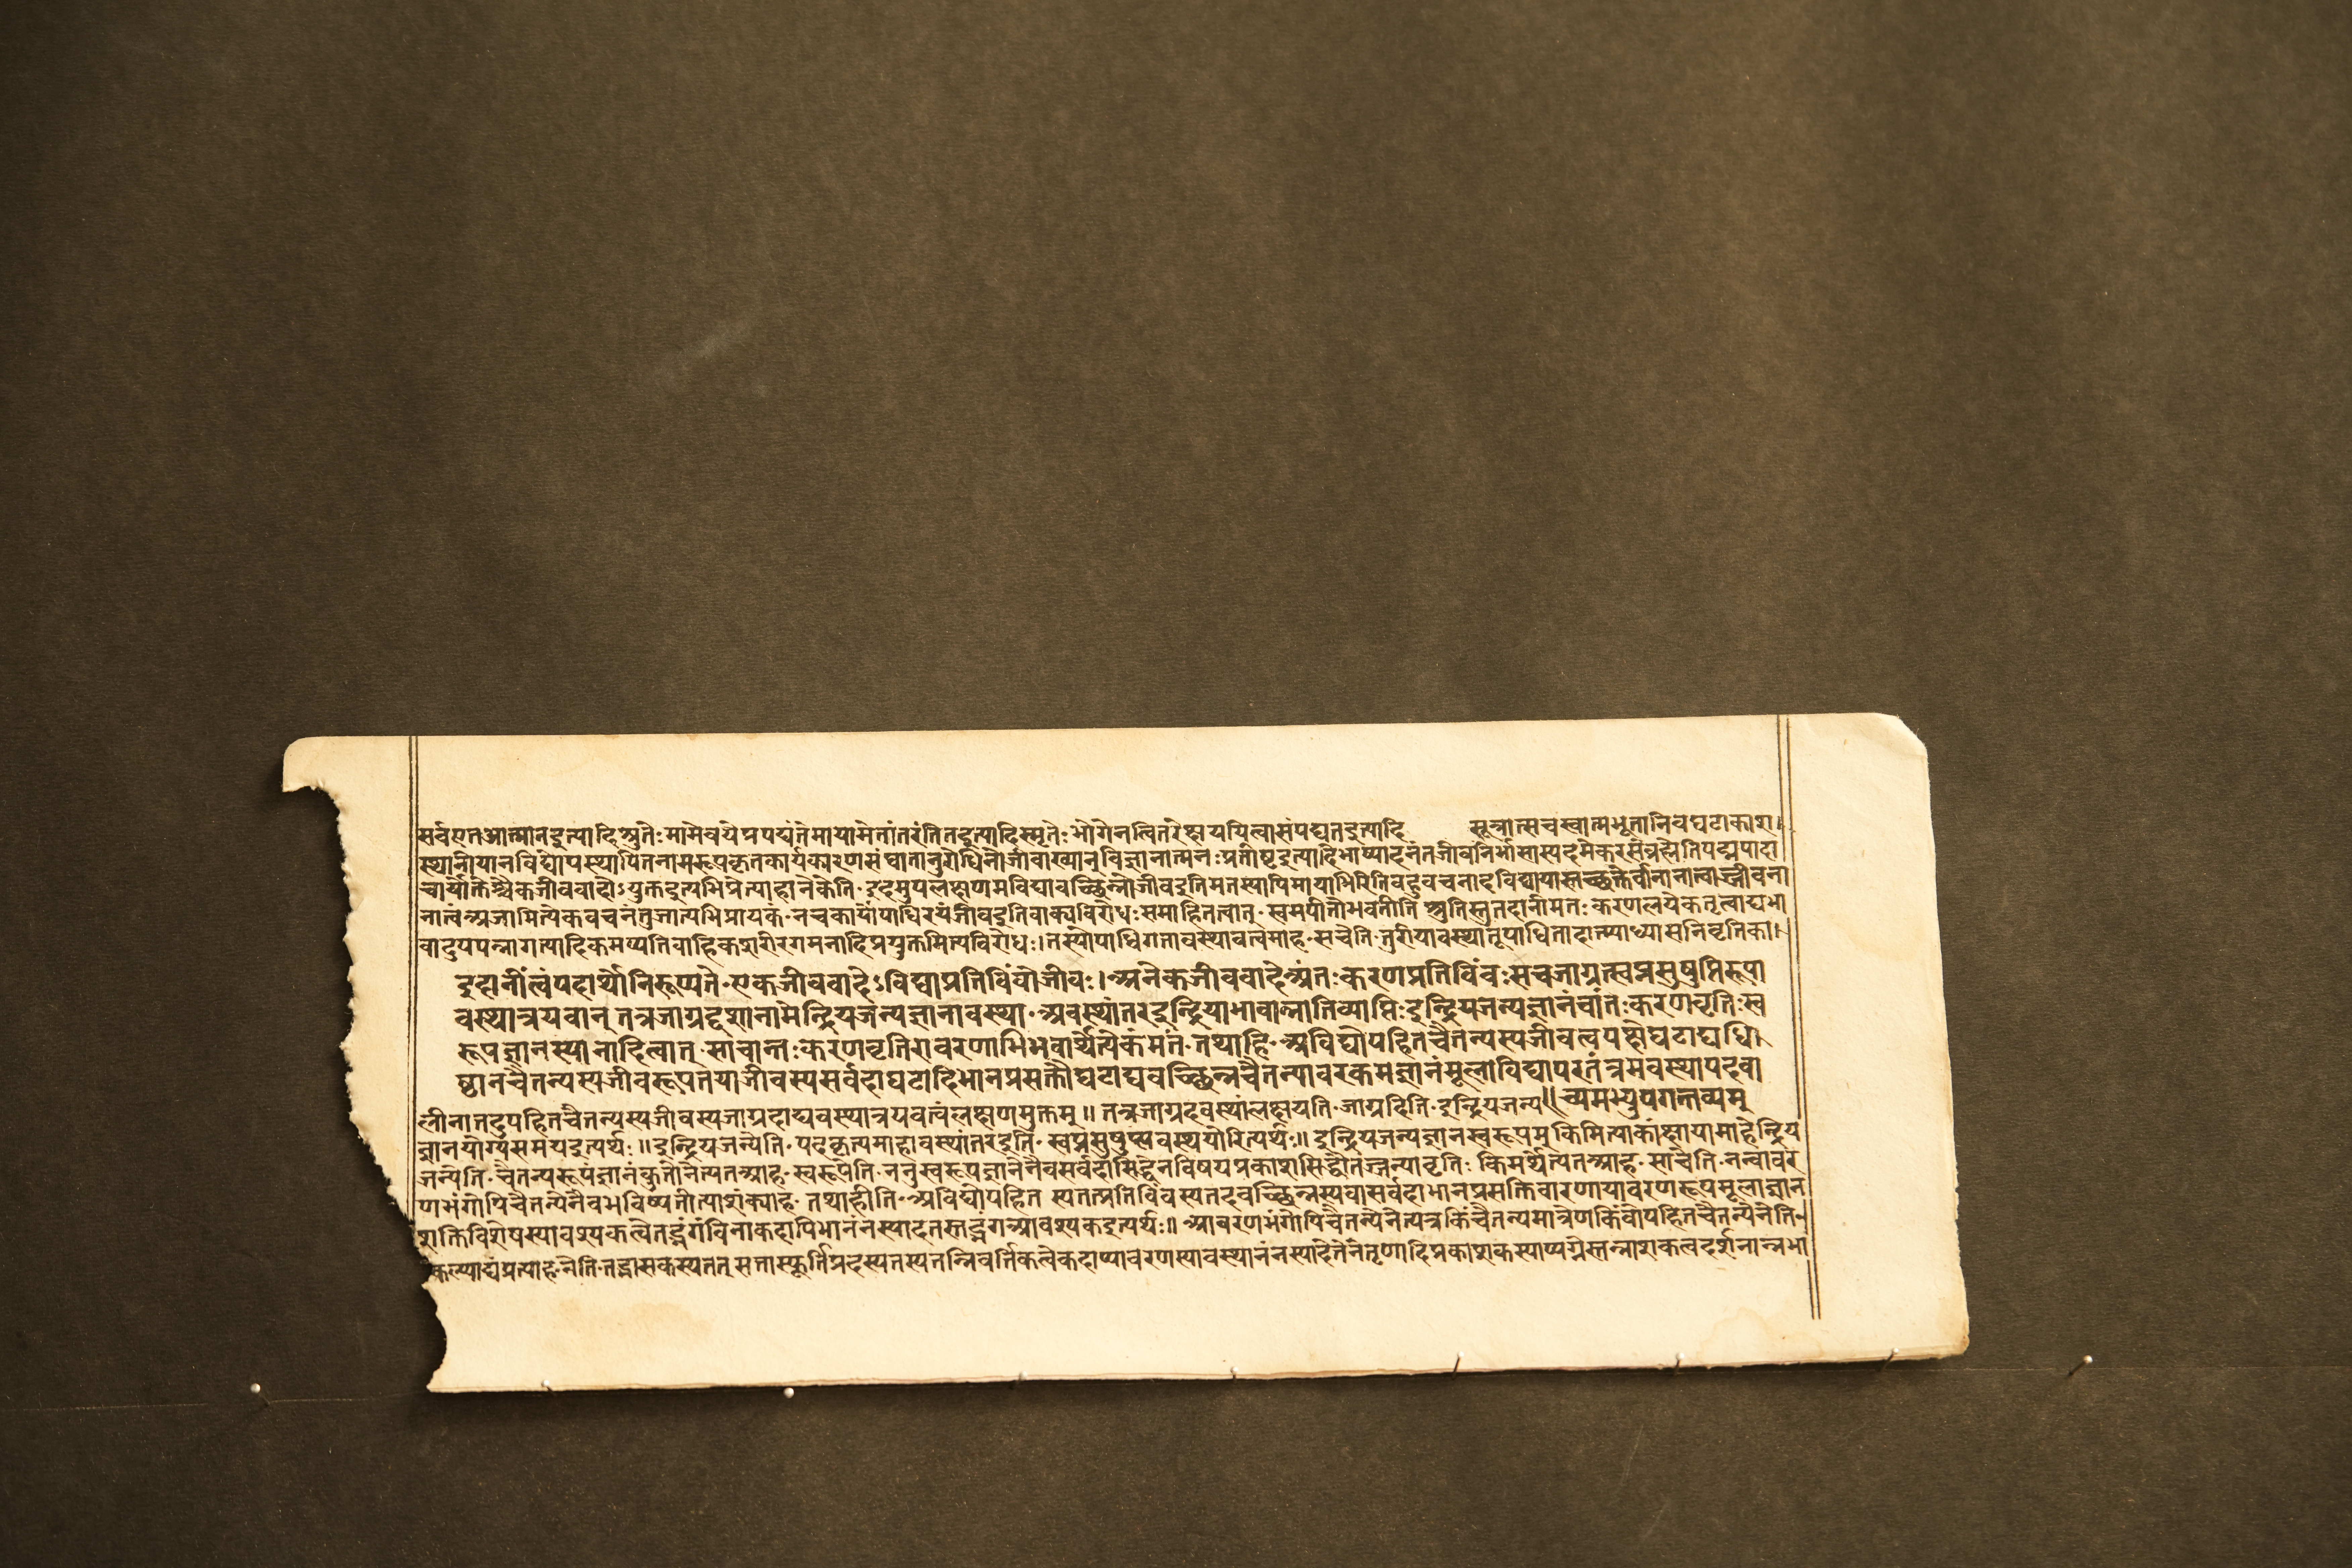 सर्वएतआत्मानइत्यादिश्रुतेःमामेवयेप्रपद्यंतेमायामेतांतरंतितइत्यादिस्मृतेःभोगेनत्वितरेक्षययित्वासंपद्यतइत्यादि सूत्रात्सचस्वात्मभूतानेवघटाकाश
स्थानीयानविद्योपस्थापितनामरूपकृतकार्यकारणसंघातानुरोधिनोजीवाख्यान्विज्ञानात्मनःप्रतीष्टइत्यादिभाष्यादनंतजीवनिर्भासास्पदमेकरसंब्रह्मेतिपद्मपादा
चार्योक्तेश्चैकजीववादोऽयुक्तइत्यभिप्रेत्याहानेकेति॰इदमुपलक्षणमविद्यावच्छिन्नोजीवइतिमतस्यापिमायाभिरितिबहुवचनादविद्यायास्तच्छक्तेर्वानानात्वाज्जीवना
नात्वंअजामित्येकवचनंतुजात्यभिप्रायकं॰नचकार्योपाधिरयंजीवइतिवाक्यविरोधःसमाहितत्वात्॰स्वमपीतोभवतीति श्रुतिस्तुतदानीमंतःकरणलयेकतृत्वाद्यभा
वादुपपन्नागत्यादिकमप्यतिवाहिकशरीरगमनादिप्रयुक्तमित्यविरोधः।तस्योपाधिगतावस्थावत्वमाह॰सचेति॰तुरीयावस्थातूपाधितादात्म्याध्यासनिवृतिका।
इदानींत्वंपदार्थोनिरूप्यते॰एकजीववादेऽविद्याप्रतिबिंबोजीवः।अनेकजीववादेअंतःकरणप्रतिबिंबःसचजाग्रत्स्वप्नसुषुप्तिरूपा
वस्थात्रयवान् तत्रजाग्रद्दशानामेन्द्रियजन्यज्ञानावस्था॰अवस्थांतरेइन्द्रियाभावान्नातिव्याप्तिःइन्द्रियजन्यज्ञानंचांतःकरणवृतिःस्व
रूपज्ञानस्यानादित्वात्॰साचान्तःकरणवृतिरावरणाभिभवार्थेत्येकंमतं॰तथाहि॰अविद्योपहितचैतन्यस्यजीवत्वपक्षेघटाद्यधि।
ष्ठानचैतन्यस्यजीवरूपतयाजीवस्यसर्वदाघटादिभानप्रसक्तौघटाद्यवच्छिन्नचैतन्यावरकमज्ञानंमूलाविद्यापरतंत्रमवस्थापदवा
च्यमभ्युपगन्तव्यम्
लीनातदुपहितचैतन्यस्यजीवस्यजाग्रदाद्यवस्थात्रयवत्वंलक्षणमुक्तम्॥ तत्रजाग्रदवस्थांलक्षयति॰जाग्रदिति॰इन्द्रियजन्य॥
ज्ञानयोग्यसमयइत्यर्थः॥इन्द्रियजन्येति॰पदकृत्यमाहावस्थांतरइति॰स्वप्नसुषुप्त्यवस्थयोरित्यर्थः॥ इन्द्रियजन्यज्ञानस्वरूपम् किमित्याकांक्षायामाहेन्द्रिय
जन्येति॰चैतन्यरूपंज्ञानंकुतोनेत्यतआह॰स्वरूपेति॰ननुस्वरूपज्ञानेनैवसर्वदासिद्धेनविषयप्रकाशसिद्धौतज्जन्यावृतिः किमर्थेत्यतआह॰साचेति॰नन्वावर
णभंगोपिचैतन्येनैवभविष्यतीत्याशंक्याह॰तथाहीति॰अविद्योपहित स्यतत्प्रतिबिंबस्यतदवच्छिन्नस्यवासर्वदाभानप्रसक्तिवारणायावरणरूपमूलाज्ञान
शक्तिविशेषस्यावश्यकत्वेतद्भंगंविनाकदापिभानंनस्यादतस्तद्भंगआवश्यकइत्यर्थः॥ आवरणभंगोपिचैतन्येनेत्यत्रकिंचैतन्यमात्रेणकिंवोपहितचैतन्येनेति
कल्प्याद्यंप्रत्याह॰नेति॰तद्भासकस्यतत् सतास्फूर्तिप्रदस्यतस्यतन्निवर्तिकत्वेकदाप्यावरणस्यावस्थानंनस्यादेतेनतृणादिप्रकाशकस्याप्यग्नेस्तन्नाशकत्वदर्शनान्नभा